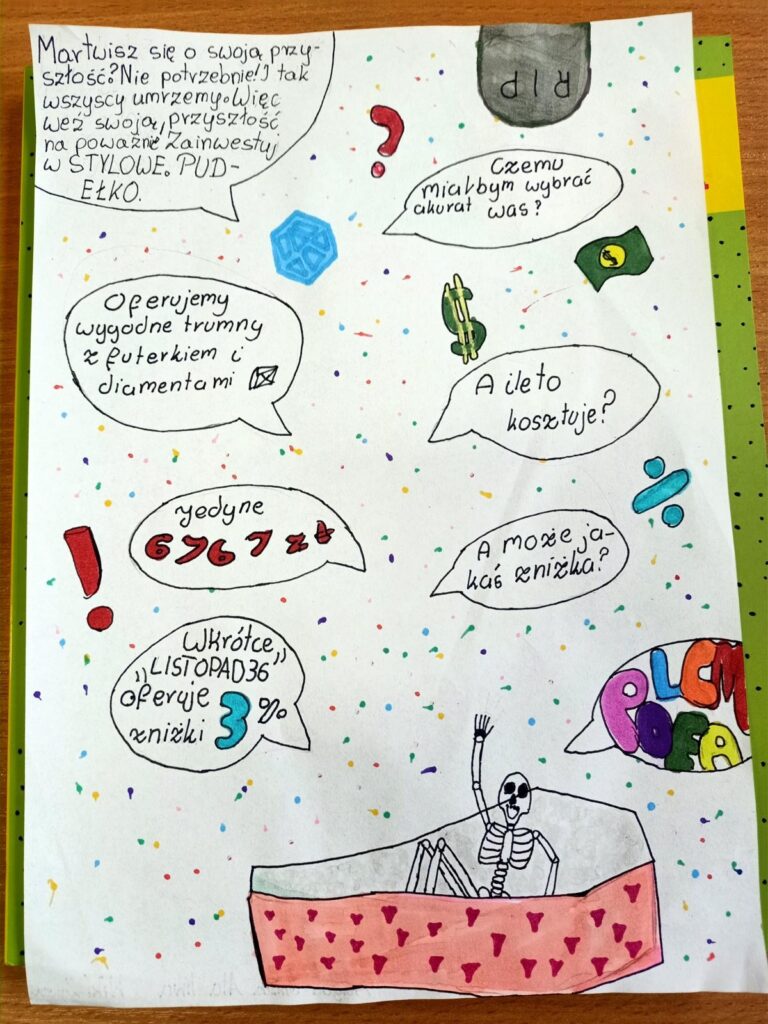 Martwisz się o swoją przy-
szłość? Nie potrzebnie! I tak
wszyscy umrzemy. Więc
weź swoją, przyszłość
na poważnie Zainwestuj
w STYLOWE. PUD-
EŁKO.
RIP
?
Czemu
miałbym wybrać
akurat was?
$
$
Oferujemy
wygodne trumny
z futerkiem i
diamentami
A ile to
kosztuje?
÷
Jedyne
6767 zł
!
A może ja-
kaś zniżka?
Wkrótce
„LISTOPAD36”
oferuje
zniżki 3%
PLCM
POFA